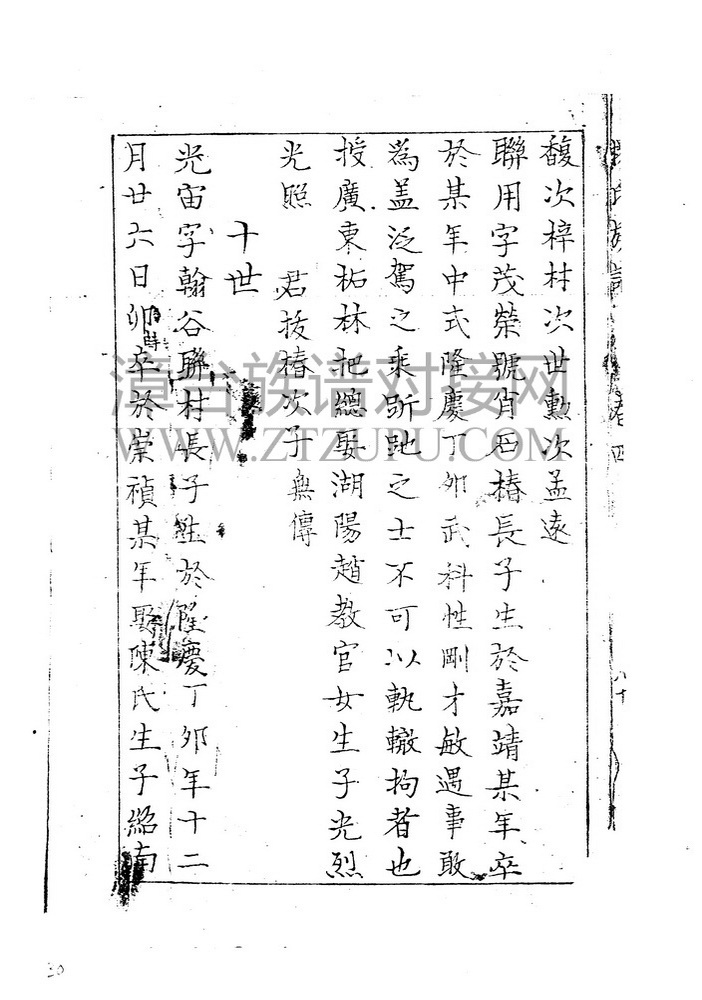 馥次梓材次世勳次孟遠
聯用字茂榮號質石椿長子生於嘉靖某年卒
於某年中式隆慶丁卯武科性剛才敏遇事敢
為盖泛駕之乘跅跎之士不可以執轍拘者也
授廣東柘林把總娶湖陽趙教官女生子光烈
光照 君拔椿次子無傳
十世
光宙字翰谷聯材長子生於隆慶丁卯年十二
月廿六日卯時卒於崇禎某年娶陳氏生子紹南
卷四
八十
漳台族谱对接网
WWW.ZTZUPU.COM
30